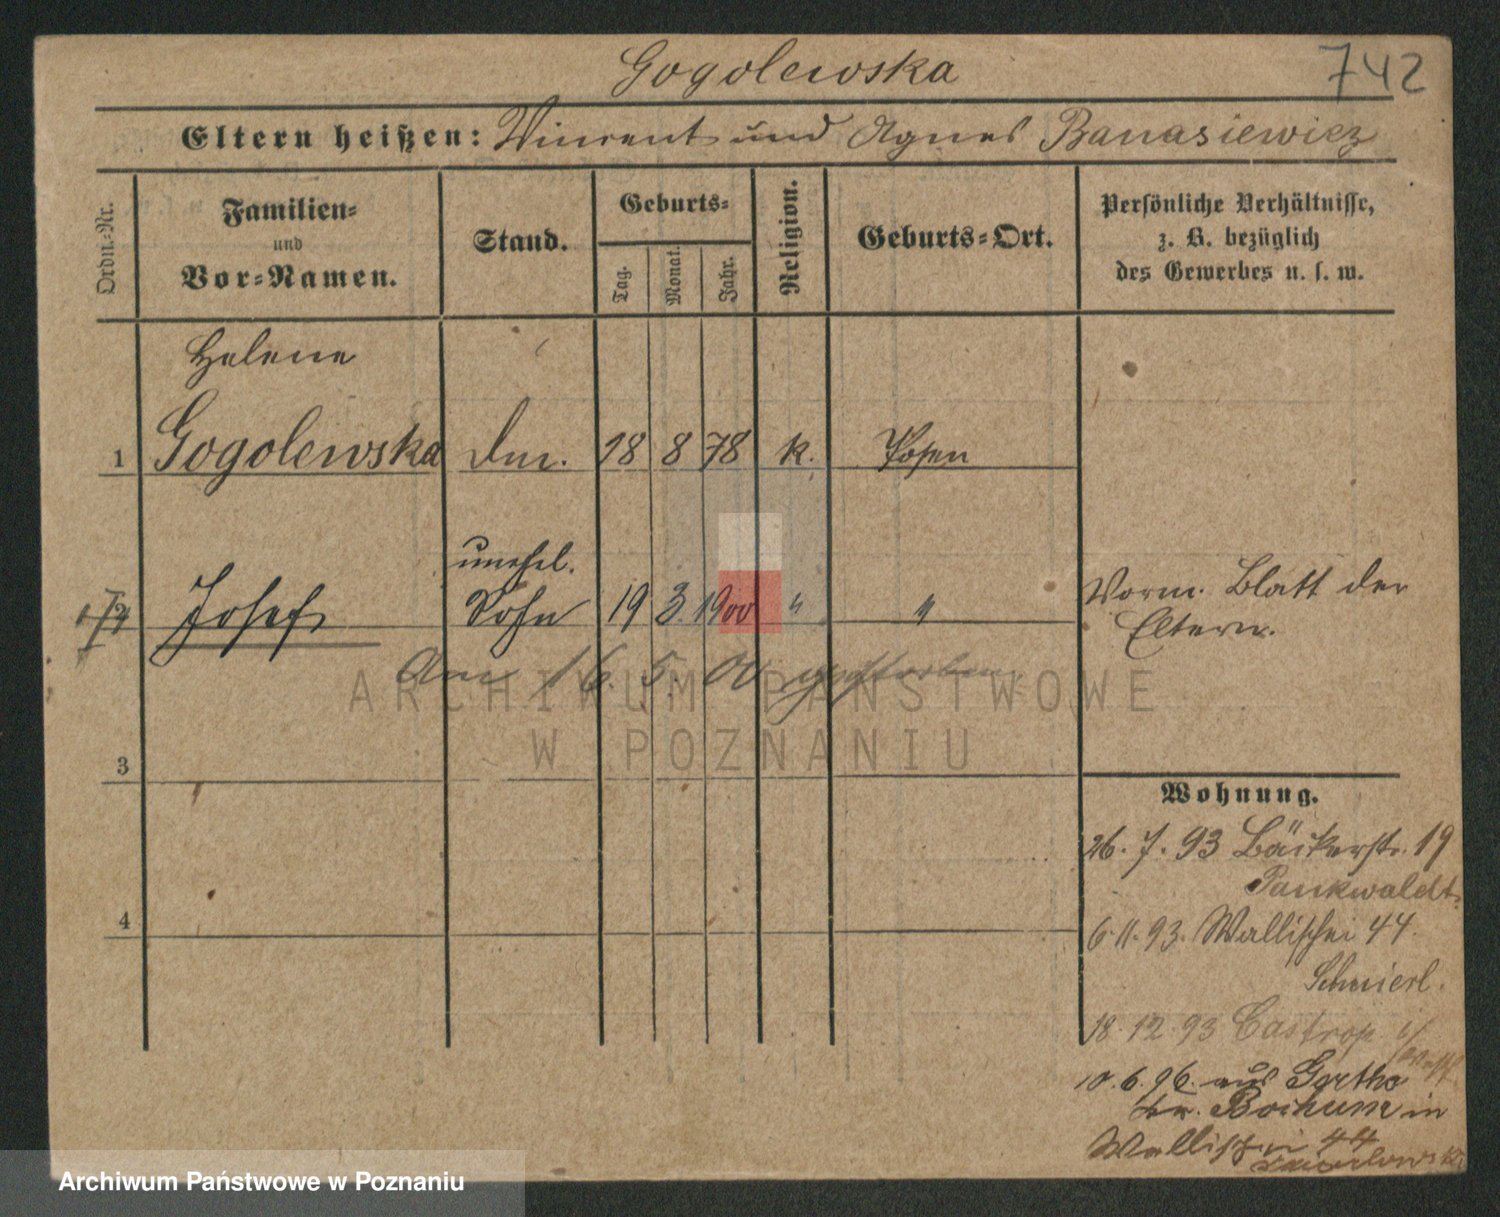 Gogolewska 742
Eltern heißen: Vincent und Agnes Banasiewicz
Ordn.-Nr.
Familien-
und
Vor-Namen.
Stand.
Geburts-
Tag.
Monat.
Jahr.
Religion.
Geburts-Ort.
Persönliche Verhältnisse,
z. B. bezüglich
des Gewerbes u. s. w.
Helene
1 Gogolewska 18 8 78 k. Posen
unehel.
2 Josef Sohn 19 3. 1900 " "
Vorm. Blatt der
Eltern.
Am 16. 5. 00 gestorben
ARCHIWUM PAŃSTWOWE
W POZNANIU
3
Wohnung.
26. 7. 93 Bäckerstr. 19
Pankwaldt
4
6. 11. 93. Wallischei 44.
Schmierl.
18. 12. 93 Castrop
10. 6. 96. aus Gerthe
Kr. Bochum in
Wallischei 44
Archiwum Państwowe w Poznaniu